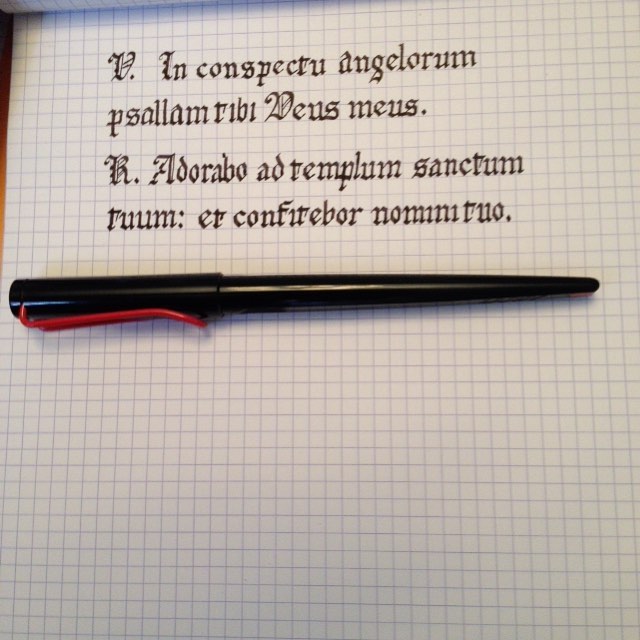 V. In conspectu angelorum
psallam tibi Deus meus.
R. Adorabo ad templum sanctum
tuum: et confitebor nomini tuo.